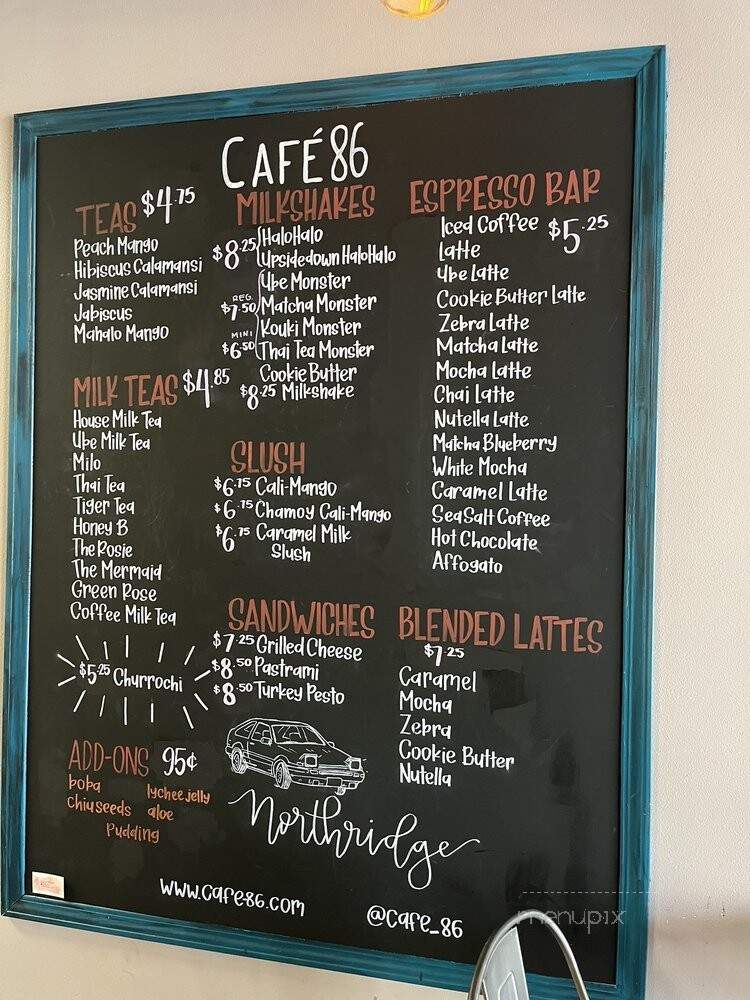 CAFÉ 86
TEAS $4.75
Peach Mango
Hibiscus Calamansi
Jasmine Calamansi
Jabiscus
Mahalo Mango
MILK TEAS $4.85
House Milk Tea
Ube Milk Tea
Milo
Thai Tea
Tiger Tea
Honey B
The Rosie
The Mermaid
Green Rose
Coffee Milk Tea
$5.25 Churrochi
ADD-ONS 95¢
boba lychee jelly
Chiuseeds aloe
Pudding
MILKSHAKES
$8.25 HaloHalo
Upsidedown HaloHalo
Ube Monster
REG. $7.50 Matcha Monster
MINI Kouki Monster
$6.50 Thai Tea Monster
Cookie Butter
$8.25 Milkshake
SLUSH
$6.75 Cali-Mango
$6.75 Chamoy Cali-Mango
$6.75 Caramel Milk
Slush
SANDWICHES
$7.25 Grilled Cheese
$8.50 Pastrami
$8.50 Turkey Pesto
ESPRESSO BAR
Iced Coffee $5.25
Latte
Ube Latte
Cookie Butter Latte
Zebra Latte
Matcha Latte
Mocha Latte
Chai Latte
Nutella Latte
Matcha Blueberry
White Mocha
Caramel Latte
SeaSalt Coffee
Hot Chocolate
Affogato
BLENDED LATTES
$7.25
Caramel
Mocha
Zebra
Cookie Butter
Nutella
Northridge
www.cafe86.com
@cafe_86
menupix